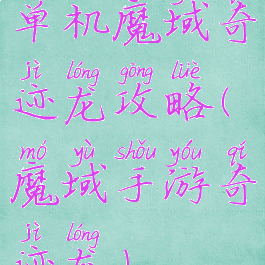 单机魔域奇
jì lóng gōng lüè
迹龙攻略(
mó yù shǒu yóu qí
魔域手游奇
jì lóng
迹龙)